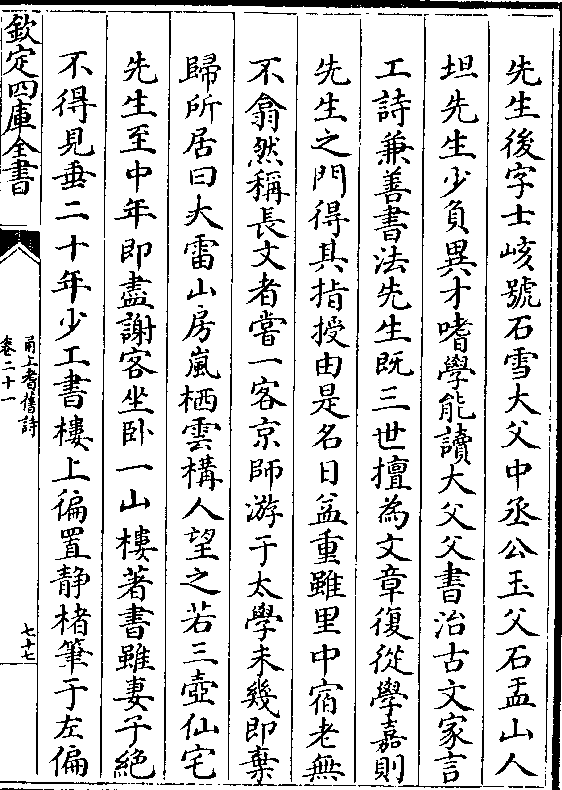 先生後字士峐號石雪大父中丞公玉父石盂山人
坦先生少負異才嗜學能讀大父父書治古文家言
工詩兼善書法先生既三世擅為文章復從學嘉則
先生之門得其指授由是名日益重雖里中宿老無
不翕然稱長文者嘗一客京師游于太學未幾即棄
歸所居曰大雷山房嵐栖雲構人望之若三壺仙宅
先生至中年即盡謝客坐卧一山樓著書雖妻子絶
不得見垂二十年少工書樓上徧置静楮筆于左偏
欽定四庫全書
甬上耆舊詩
卷二十一
七十七